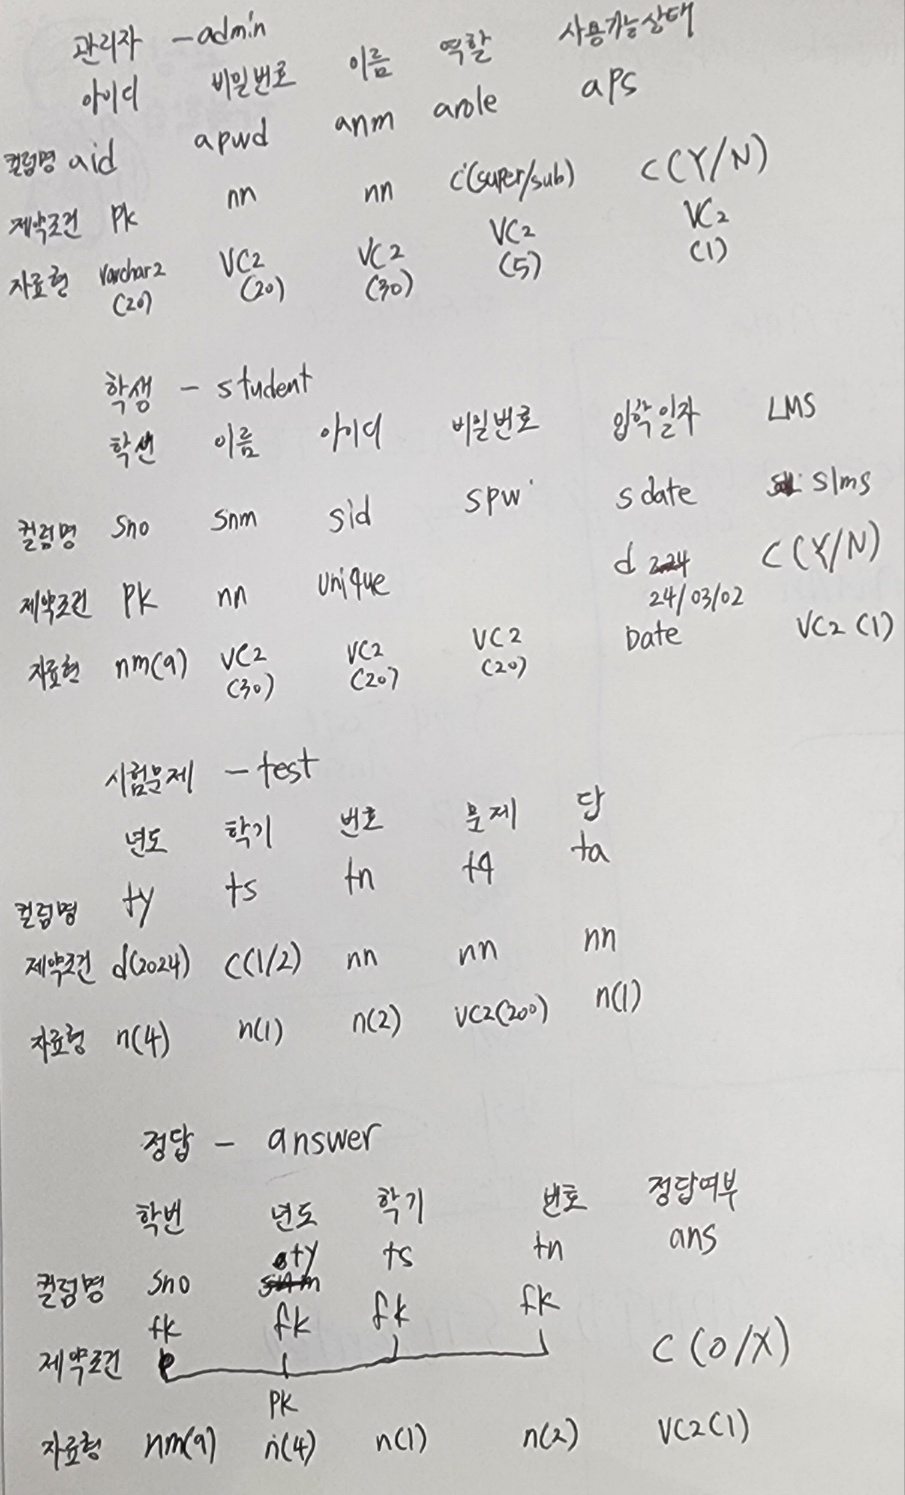 관리자 - admin
아이디 비밀번호 이름 역할 사용가능상태
컬럼명 aid apwd anm arole aps
제약조건 PK nn nn C(super/sub) C(Y/N)
자료형 varchar2(20) VC2(20) VC2(30) VC2(5) VC2(1)
학생 - student
학번 이름 아이디 비밀번호 입학일자 LMS
컬럼명 sno snm sid spw sdate slms
제약조건 PK nn unique d 24/03/02 C(Y/N)
자료형 nm(9) VC2(30) VC2(20) VC2(20) Date VC2(1)
시험문제 - test
년도 학기 번호 문제 답
컬럼명 ty ts tn tq ta
제약조건 d(2024) C(1/2) nn nn nn
자료형 n(4) n(1) n(2) VC2(200) n(1)
정답 - answer
학번 년도 학기 번호 정답여부
컬럼명 sno ty ts tn ans
제약조건 fk fk fk fk C(O/X)
PK
자료형 nm(9) n(4) n(1) n(2) VC2(1)